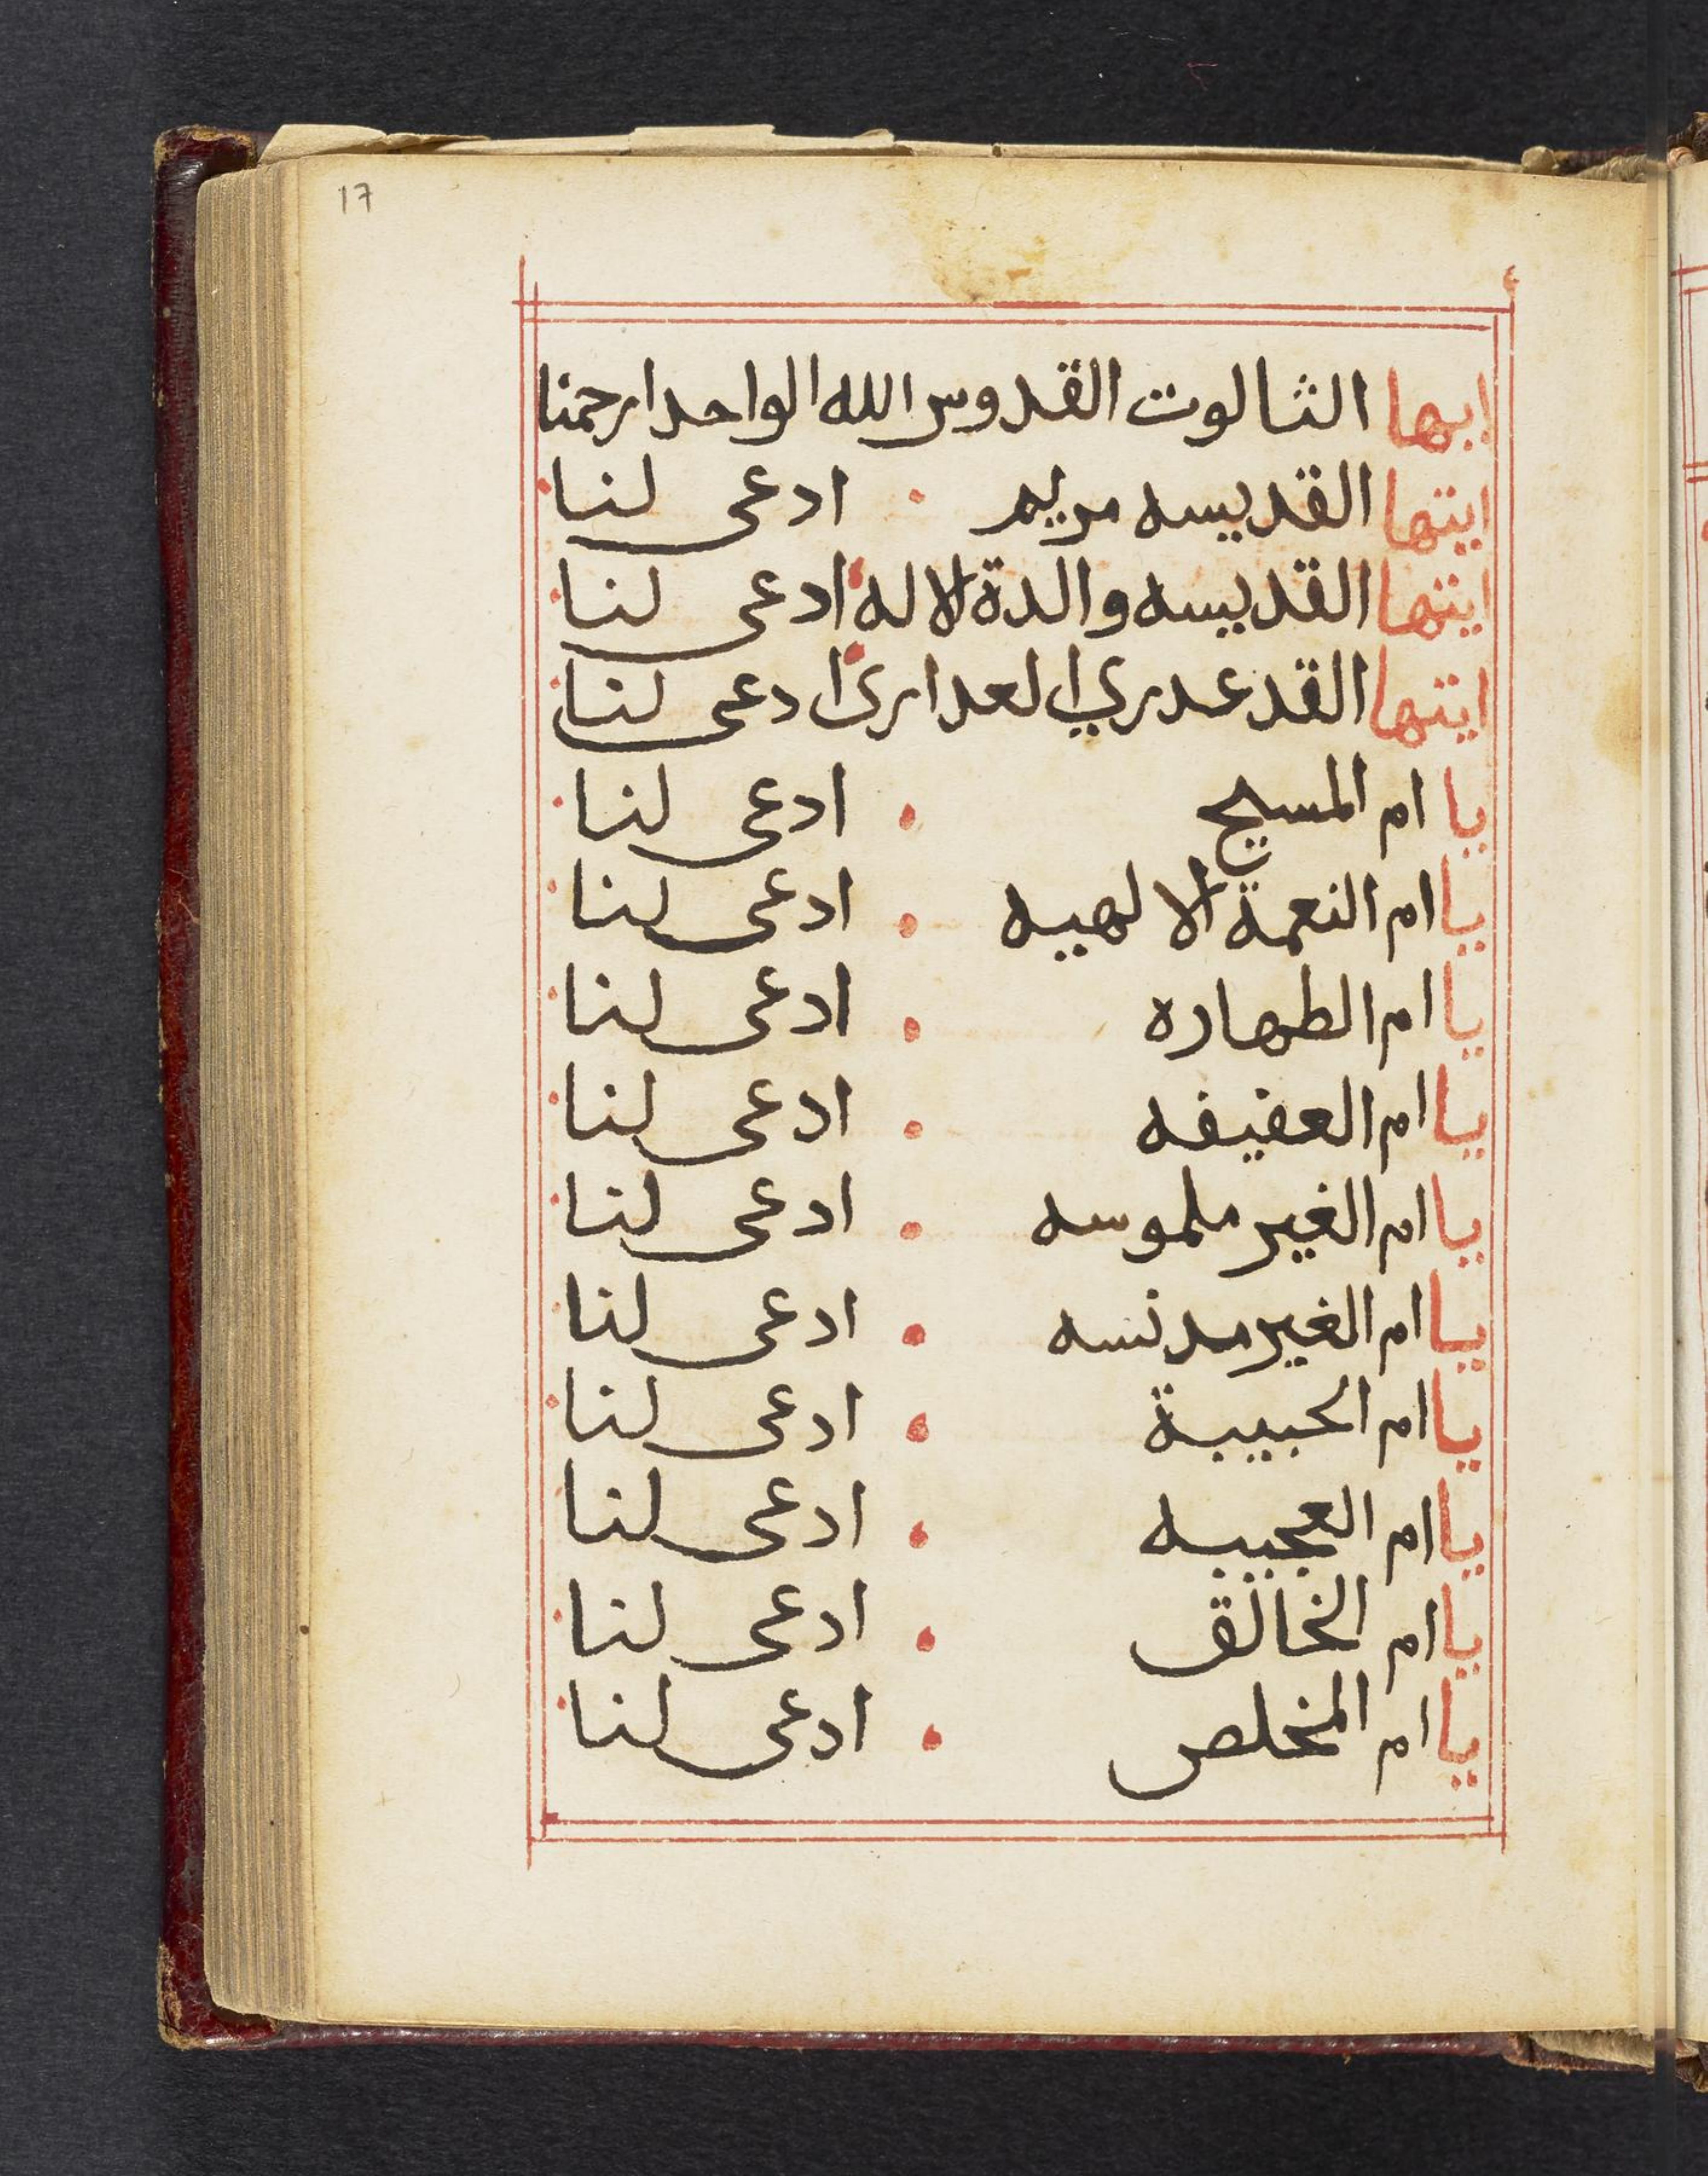 17
ايها الثالوت القدوس الله الواحد ارحمنا
ايتها القديسه مريم ادعى لنا
ايتها القديسه والدة الاله ادعى لنا
ايتها القد عدري العدارى ادعى لنا
يا ام المسيح ادعى لنا
يا ام النعمة الالهيه ادعى لنا
يا ام الطهاره ادعى لنا
يا ام العفيفه ادعى لنا
يا ام الغير ملموسه ادعى لنا
يا ام الغير مدنسه ادعى لنا
يا ام الحبيبة ادعى لنا
يا ام العجيبه ادعى لنا
يا ام الخالق ادعى لنا
يا ام المخلص ادعى لنا